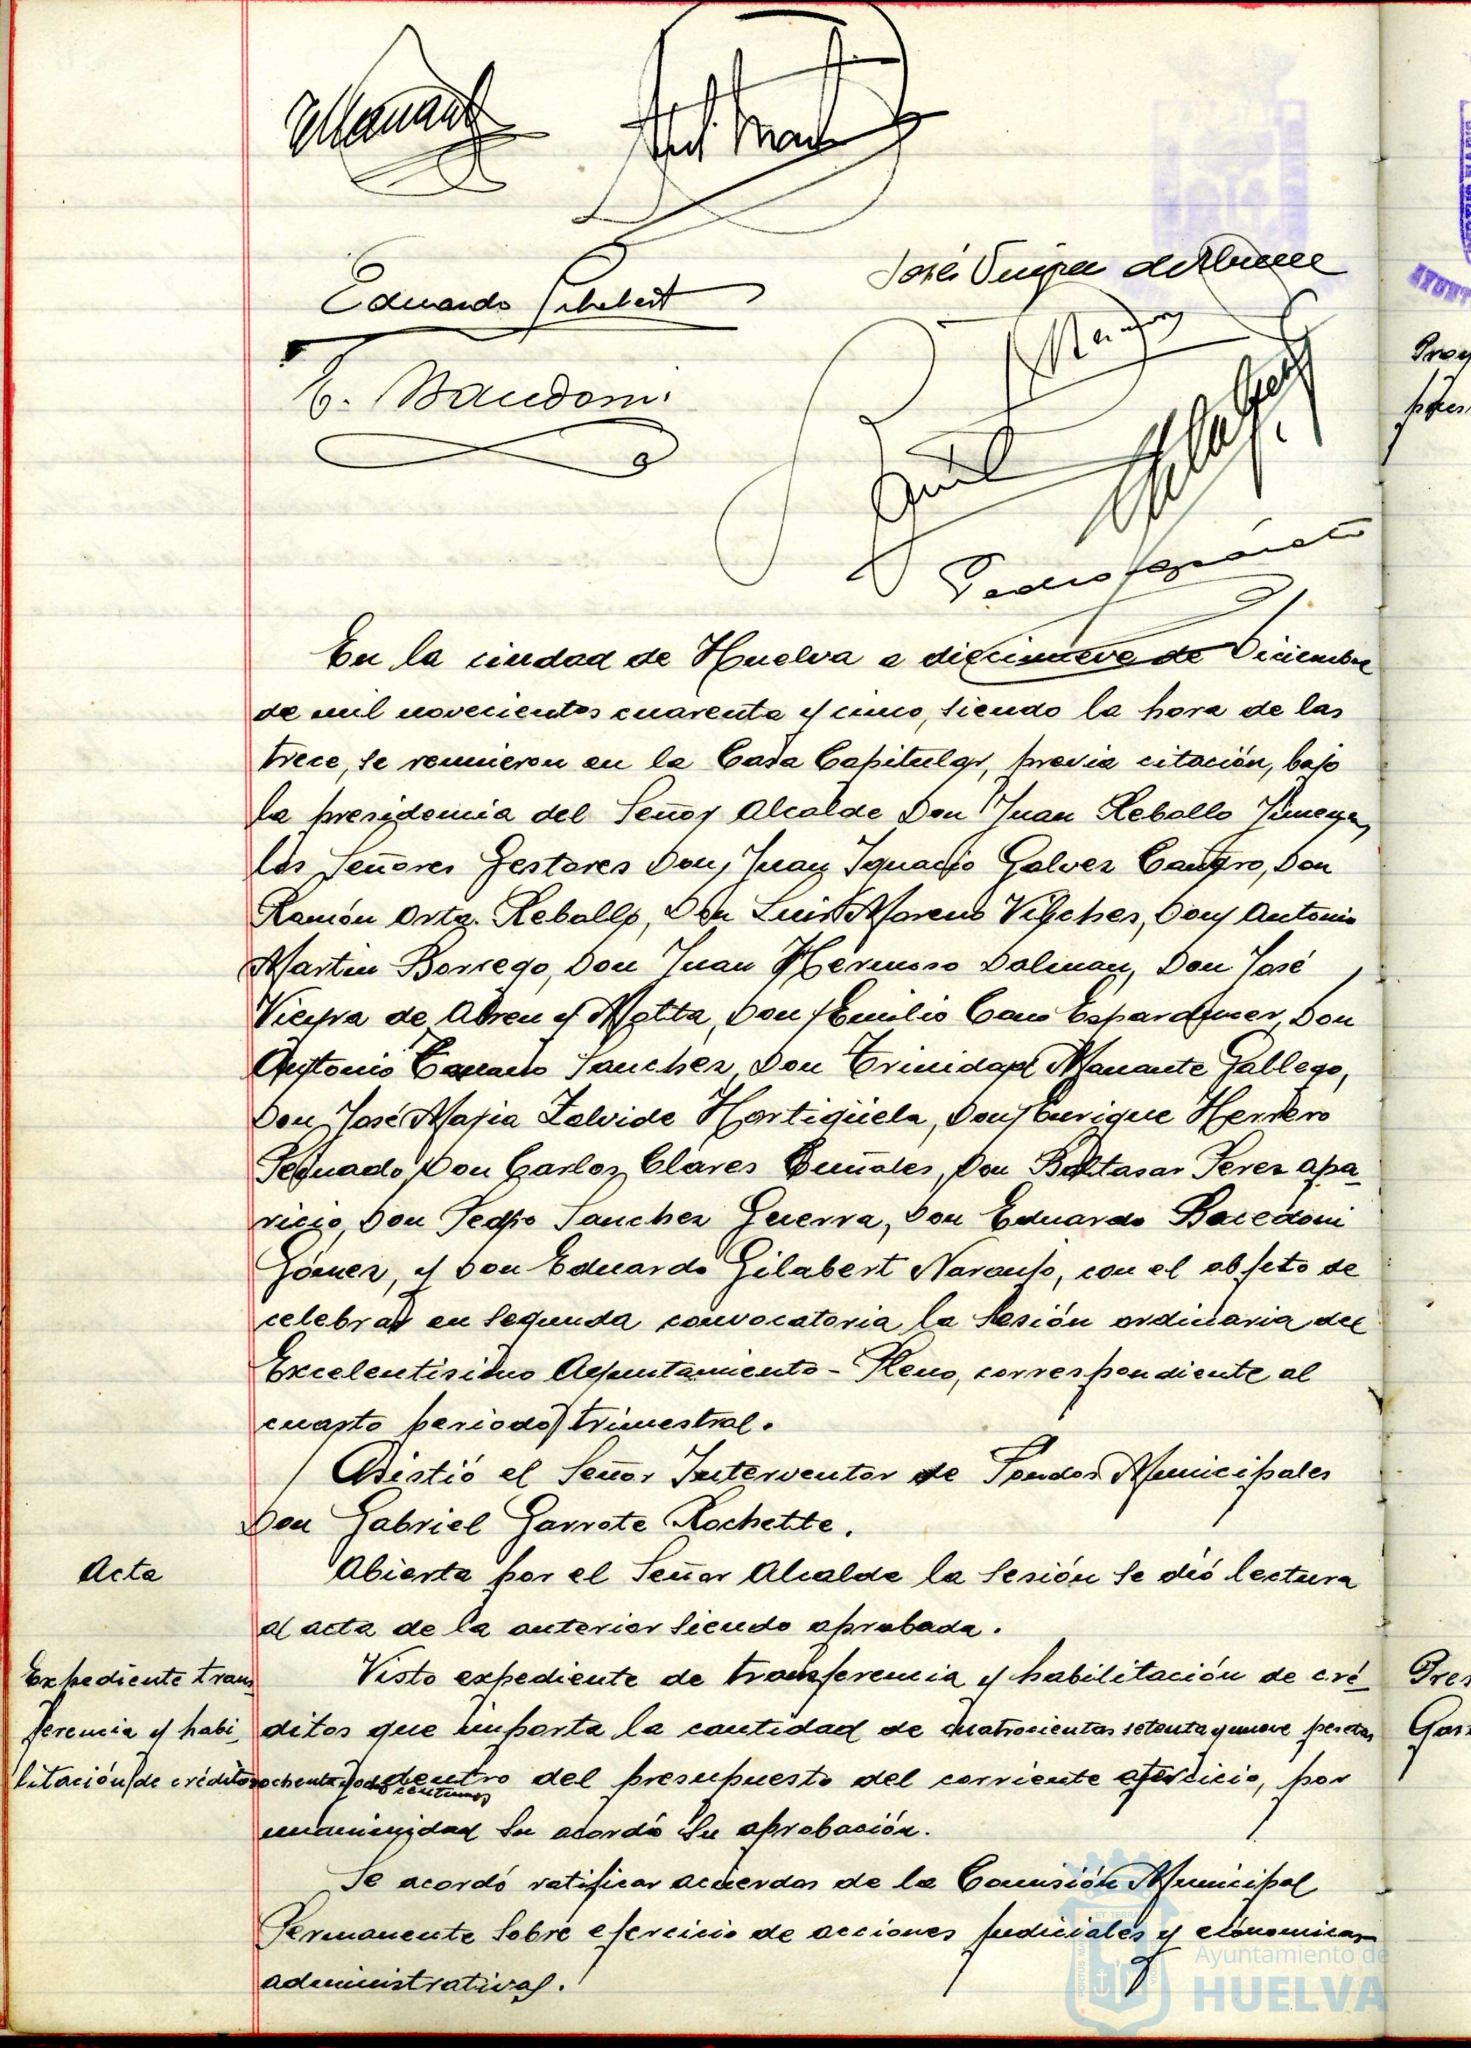 Eduardo Gilabert
José Vieyra de Abreu
E. Bacedoni
Pedro
En la ciudad de Huelva a diecinueve de Diciembre
de mil novecientos cuarenta y cinco, siendo la hora de las
trece, se reunieron en la Casa Capitular, previa citación, bajo
la presidencia del Señor Alcalde Don Juan Rebollo Jimenez,
los Señores Gestores Don Juan Ignacio Galvez Cañero, Don
Ramón Orta Rebollo, Don Luis Moreno Vilches, Don Antonio
Martin Borrego, Don Juan Hermoso Dolinan, Don José
Vieyra de Abreu y Motta, Don Emilio Cano Esparducer, Don
Antonio Sanchez, Don Trinidad Manante Gallego,
Don José Maria Zalvide Hortigüela, Don Enrique Herrero
Don Carlos Clares Don Baltasar Perez Apa-
ricio, Don Pedro Sanchez Guerra, Don Eduardo Bacedoni
Gómez, y Don Eduardo Gilabert Naranjo, con el objeto de
celebrar en segunda convocatoria la sesión ordinaria del
Excelentisimo Ayuntamiento-Pleno, correspondiente al
cuarto periodo trimestral.
Asistió el Señor Interventor de Fondos Municipales
Don Gabriel Garrote Rochette.
Acta
Abierta por el Señor Alcalde la sesión se dió lectura
al acta de la anterior siendo aprobada.
Expediente trans
ferencia y habi-
litación de créditos
Visto expediente de transferencia y habilitación de cré-
ditos que importa la cantidad de cuatrocientas setenta y nueve pesetas
ochenta y dos centimos dentro del presupuesto del corriente ejercicio, por
unanimidad su acordó su aprobación.
Se acordó ratificar acuerdos de la Comisión Municipal
Permanente sobre ejercicio de acciones judiciales y económicas
administrativas.
Ayuntamiento de
HUELVA